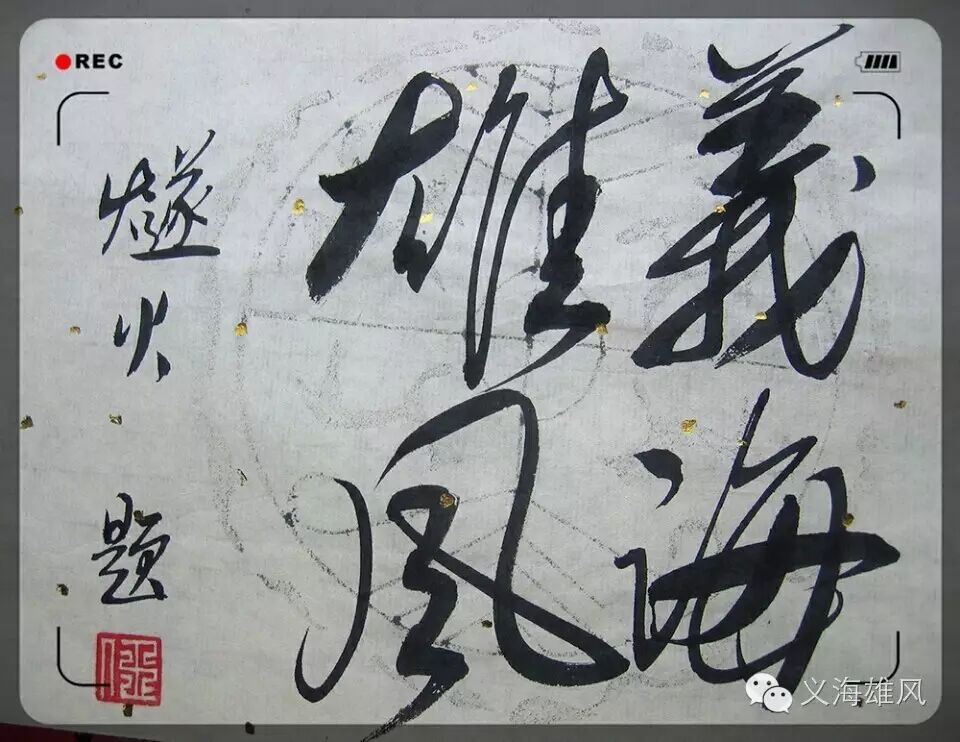 REC
義海
雄風
燧火 題
义海雄风